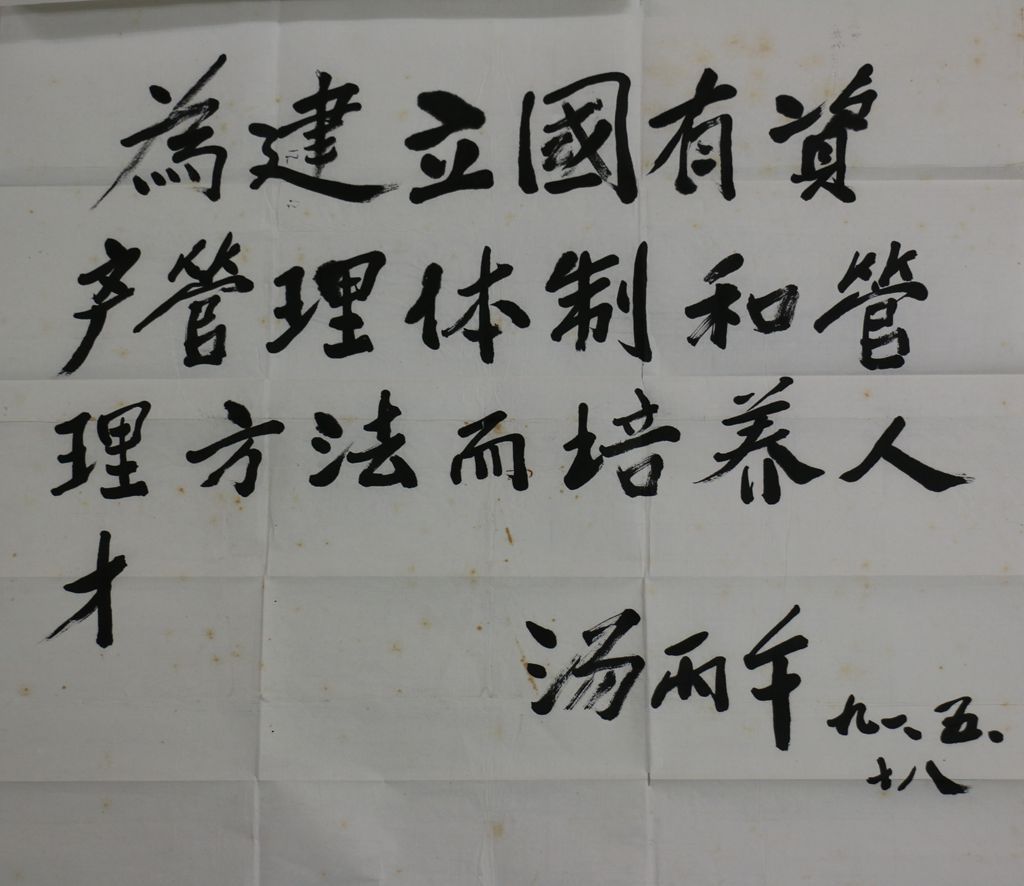 為建立國有資
产管理体制和管
理方法而培养人
才
汤丙午
九一、五、
十八